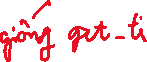 giống get-ti